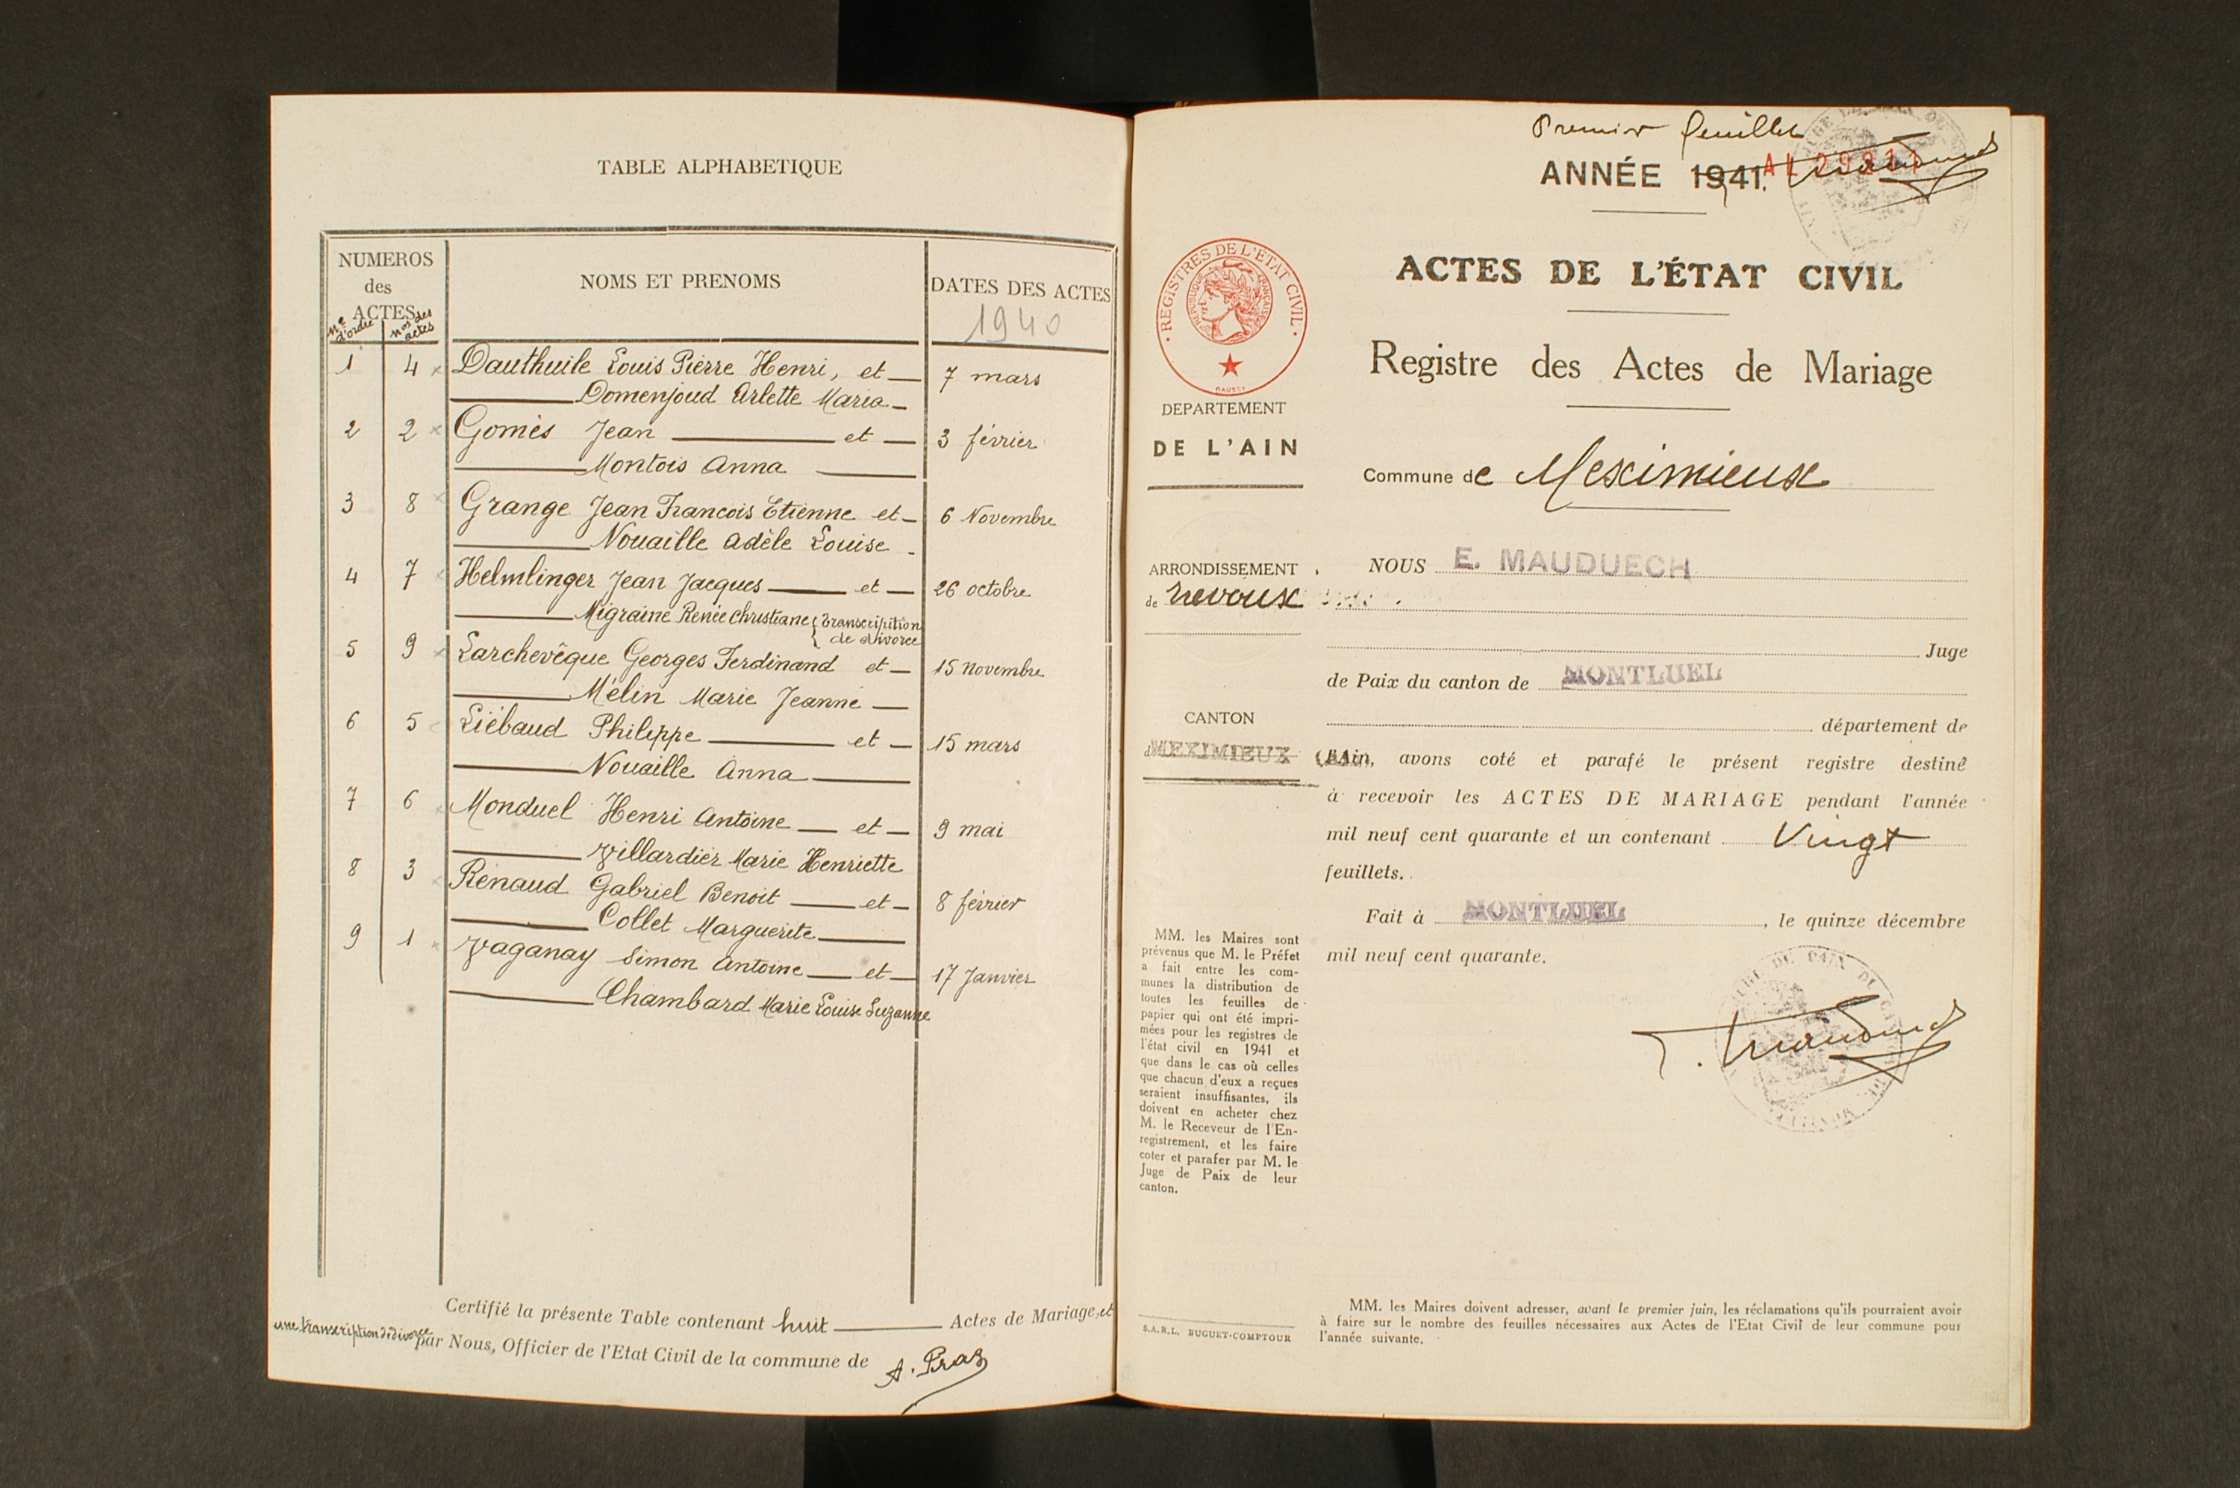 TABLE ALPHABETIQUE
NUMEROS
des
ACTES
NOMS ET PRENOMS
DATES DES ACTES
1940
Nº d'ordre
nos des actes
1 4 Dauthuile Louis Pierre Henri, et 7 mars
Domenjoud Arlette Maria
2 2 Gomès Jean et 3 février
Montois Anna
3 8 Grange Jean Francois Etienne et 6 Novembre
Nouaille Adèle Louise
4 7 Helmlinger Jean Jacques et 26 octobre
Migraine Renée Christiane (transcription
de divorce
5 9 Larchevêque Georges Ferdinand et 15 novembre
Mélin Marie Jeanne
6 5 Liébaud Philippe et 15 mars
Nouaille Anna
7 6 Monduel Henri Antoine et 9 mai
Villardier Marie Henriette
8 3 Renaud Gabriel Benoit et 8 février
Collet Marguerite
9 1 Vaganay Simon Antoine et 17 Janvier
Chambard Marie Louise Suzanne
Certifié la présente Table contenant huit Actes de Mariage, et
une transcription de divorce par Nous, Officier de l'Etat Civil de la commune de
A. Pras
Premier feuillet
ANNÉE 1941.
ACTES DE L'ÉTAT CIVIL
Registre des Actes de Mariage
REGISTRES DE L'ETAT CIVIL
REPUBLIQUE FRANÇAISE
DEPARTEMENT
DE L'AIN
Commune de Meximieux
ARRONDISSEMENT
de Trévoux
CANTON
de MEXIMIEUX
NOUS E. MAUDUECH
Juge
de Paix du canton de MONTLUEL
département de
l'Ain, avons coté et parafé le présent registre destiné
à recevoir les ACTES DE MARIAGE pendant l'année
mil neuf cent quarante et un contenant Vingt
feuillets.
Fait à MONTLUEL, le quinze décembre
mil neuf cent quarante.
MM. les Maires sont
prévenus que M. le Préfet
a fait entre les com-
munes la distribution de
toutes les feuilles de
papier qui ont été impri-
mées pour les registres de
l'état civil en 1941 et
que dans le cas où celles
que chacun d'eux a reçues
seraient insuffisantes, ils
doivent en acheter chez
M. le Receveur de l'En-
registrement, et les faire
coter et parafer par M. le
Juge de Paix de leur
canton.
S.A.R.L. BUGUET-COMPTOUR
MM. les Maires doivent adresser, avant le premier juin, les réclamations qu'ils pourraient avoir
à faire sur le nombre des feuilles nécessaires aux Actes de l'Etat Civil de leur commune pour
l'année suivante.